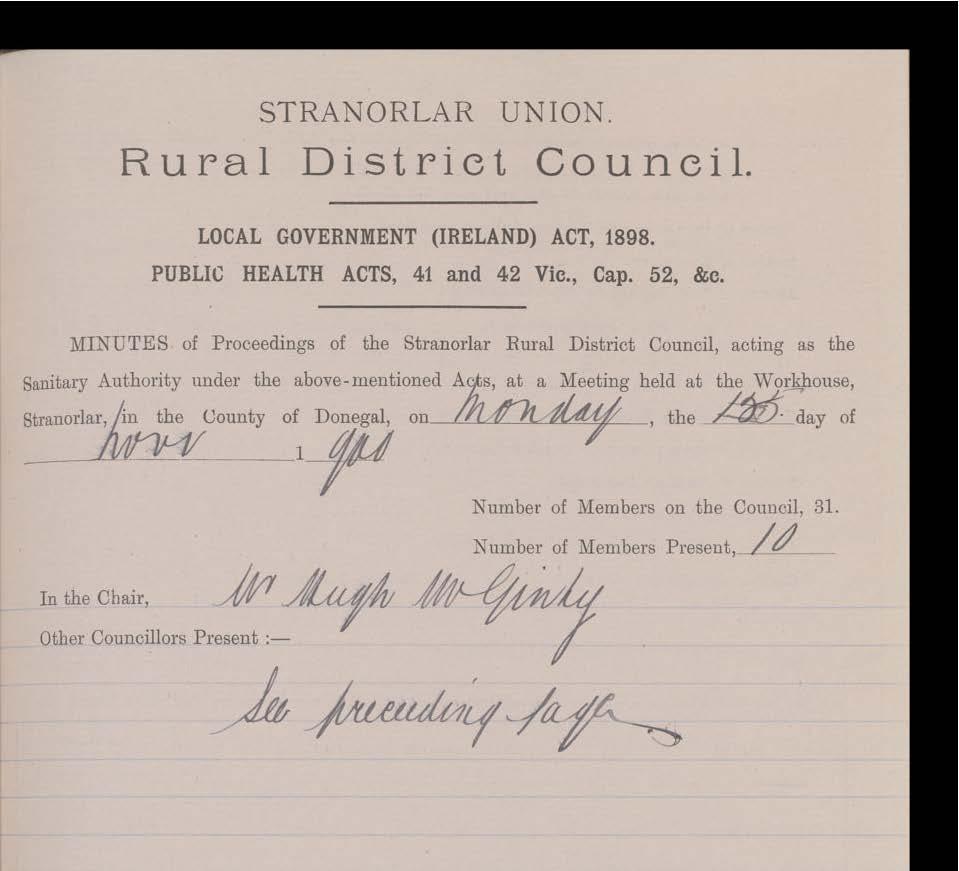 STRANORLAR UNION.
Rural District Council.
LOCAL GOVERNMENT (IRELAND) ACT, 1898.
PUBLIC HEALTH ACTS, 41 and 42 Vic., Cap. 52, &c.
MINUTES of Proceedings of the Stranorlar Rural District Council, acting as the
Sanitary Authority under the above-mentioned Acts, at a Meeting held at the Workhouse,
Stranorlar, in the County of Donegal, on Monday, the day of
Novr 1900
Number of Members on the Council, 31.
Number of Members Present, 10
In the Chair, Mr Hugh McGinty
Other Councillors Present :—
See preceding page